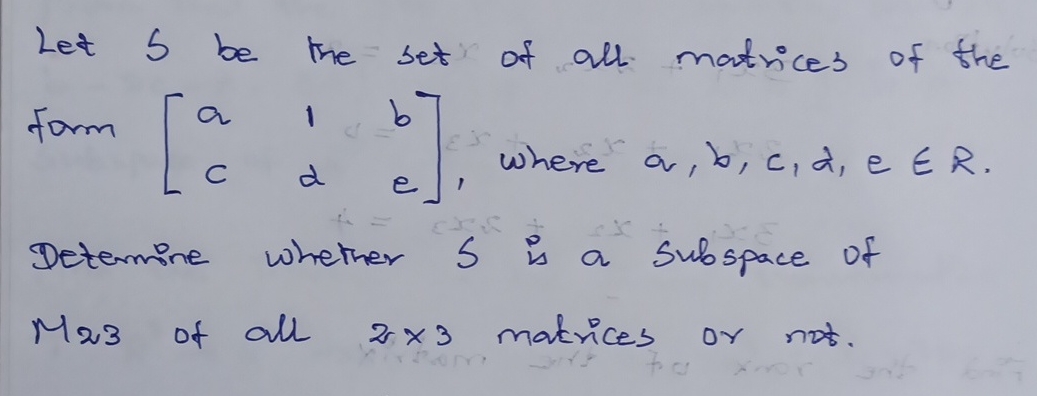 Let S be the set of all matrices of the
form [a 1 b
c d e], where a, b, c, d, e ∈ R.
Determine whether S is a subspace of
M23 of all 2x3 matrices or not.